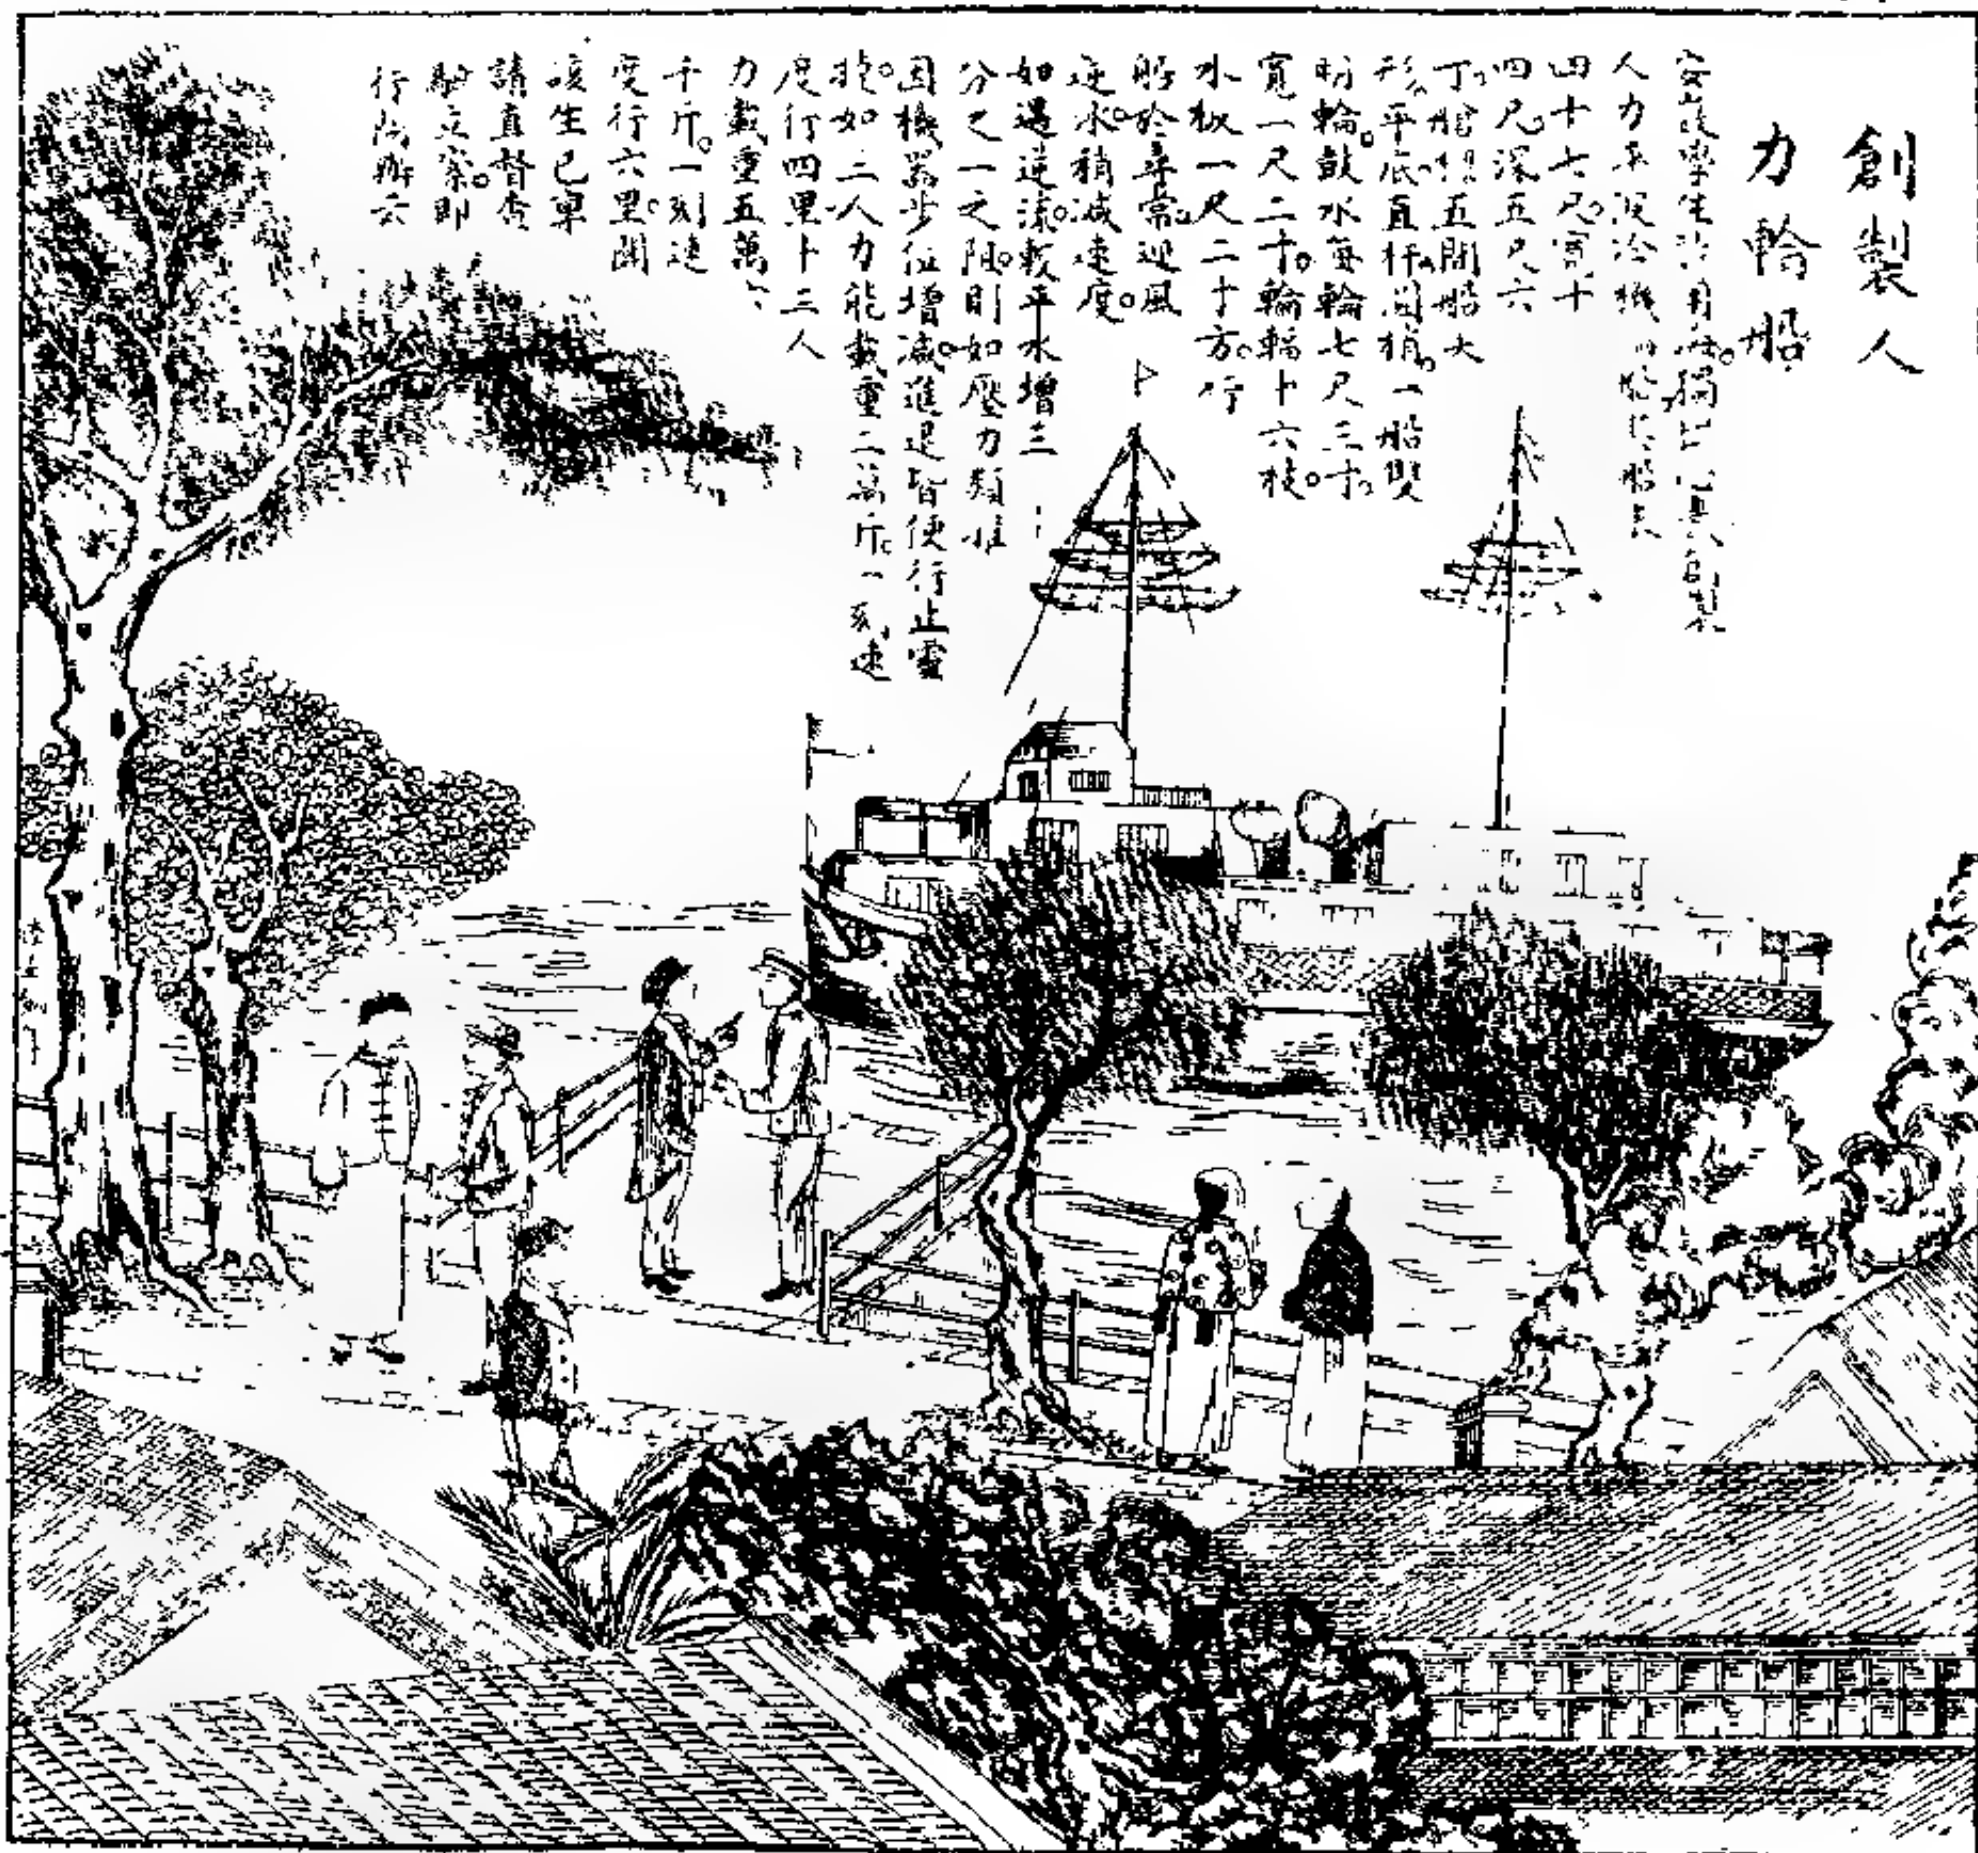 創製人
力輪船
學生
人力
四十七尺。寬十
四尺。深五尺六
丁。艙五間船大
形。平底直杆闊梢。一船雙
明輪。鼓水每輪七尺三寸。
寬一尺二寸。輪輻十六枝。
水板一尺二寸方。行
船於尋常。迎風
逆水。稍減速度。
如遇逆流。較平水增三
分之一之阻。則如壓力類推
因機器步位增減。進退皆便行止靈
捷。如二人力能載重二萬斤。一刻速
度行四里十二人
力載重五萬六
千斤。一刻速
度行六里聞
該生已稟
請直督查
驗立案。即
行開辦云